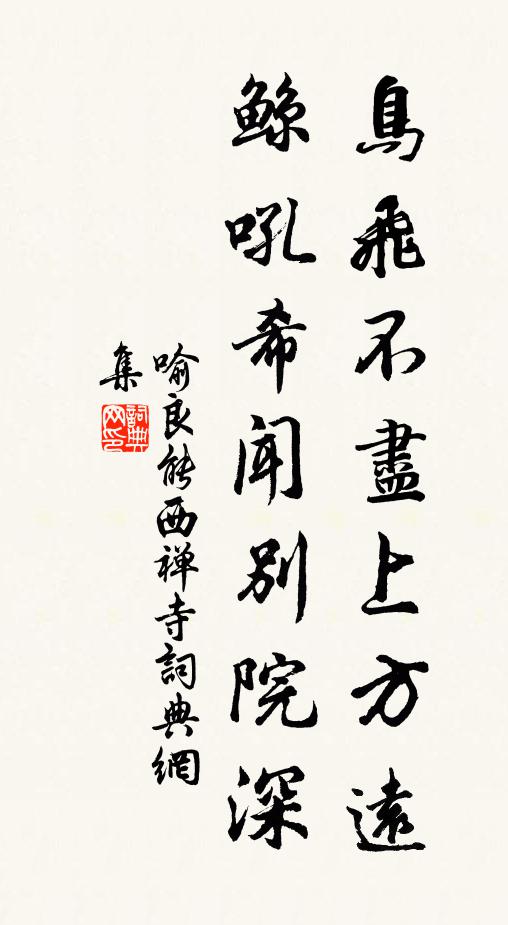 鳥飛不盡上方遠
鲸吼希闻別院深
喻良能西禅寺詞典網
集
詞典
网印